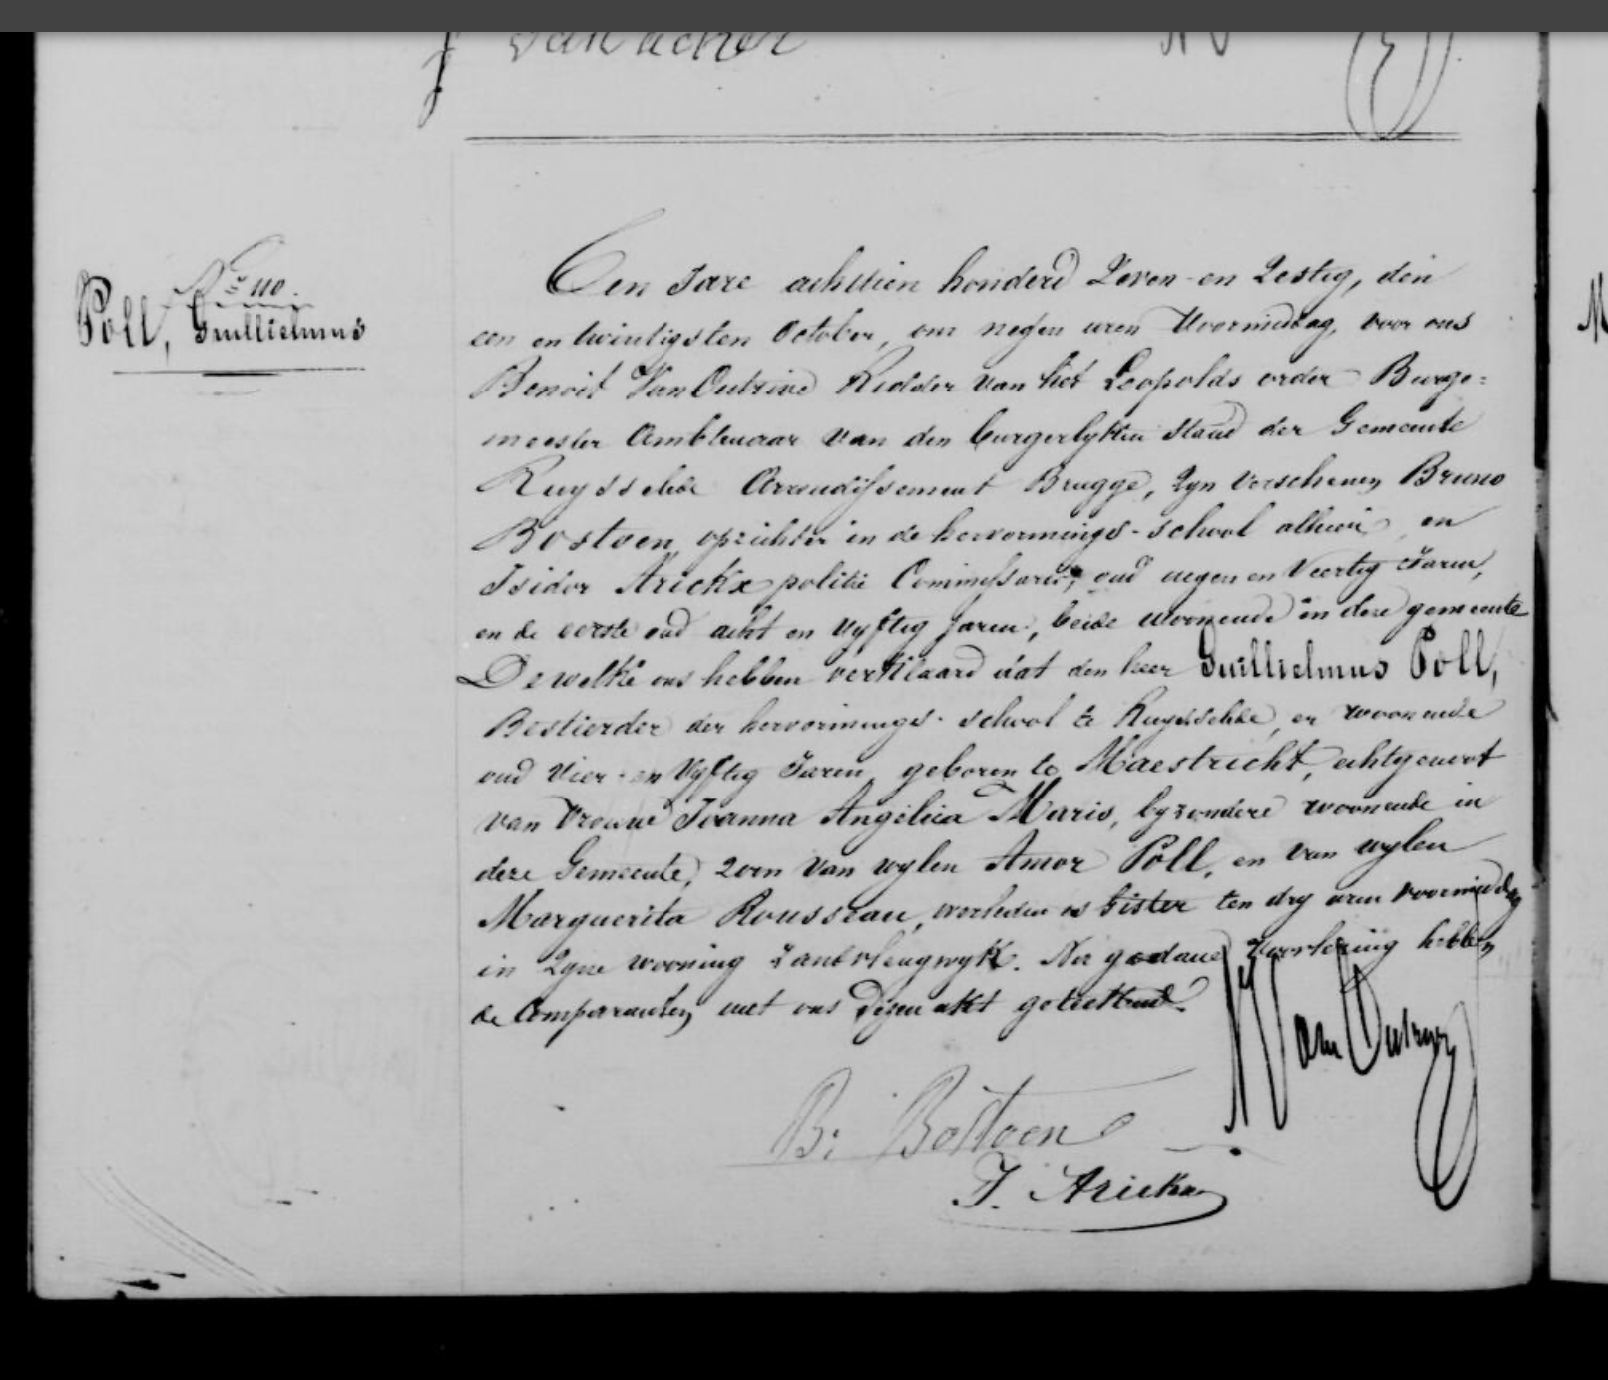 Van acker
N° 110.
Poll, Guillielmus
Een Jare achttien honderd Zeven-en Zestig, den
een en twintigsten October, om negen uren Voormiddag, voor ons
Benoit Van Outrive Ridder van het Leopolds order Burge=
meester Ambtenaar van den burgerlyken stand der Gemeente
Ruysselede Arrondissement Brugge, Zyn Verschenen Bruno
Bostoen, opzichter in de hervormings-school alhier, en
Isidor Arickx politie Commissaris, oud negen en Veertig Jaren,
en de eerste oud acht en Vyftig Jaren, beide woonende in deze gemeente
Dewelke ons hebben verklaard dat den heer Guillielmus Poll,
Bestierder der hervormings-school te Ruysselede, er woonende
oud Vier-en Vyftig Jaren, geboren te Maestricht, echtgenoot
van Vrouwe Joanna Angelica Maris, byzondere woonende in
deze Gemeente, zoon van wylen Amor Poll, en van wylen
Marguerita Rousseau, overleden is Gister ten dry uren voormiddag
in Zyne wooning Zandvleugwyk. Na gedane Voorlezing hebben
de Comparanten met ons dezen akt geteekend.
Van Outryve
B. Bostoen
I. Arickx